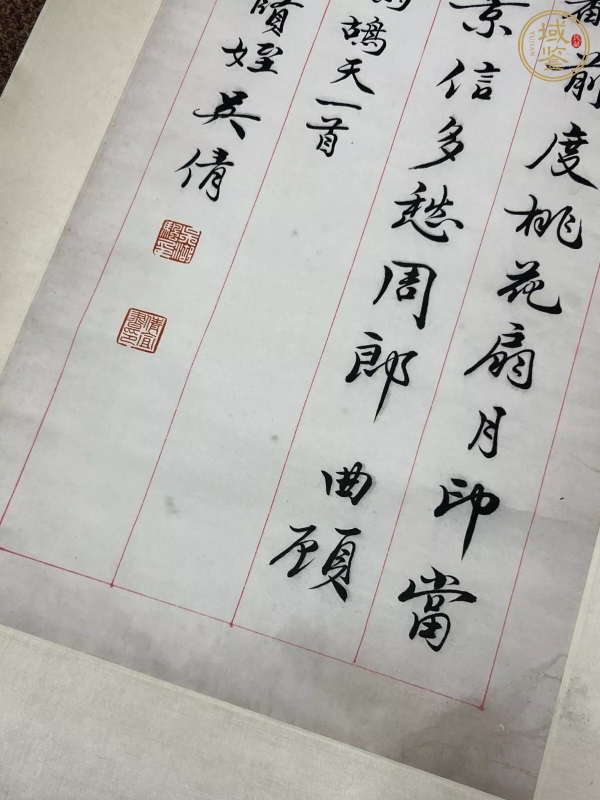 前度桃花扇月印當
景信多愁周郎曲顧
鴣天一首
賢姪吴倩
域鑒
YUJIAN